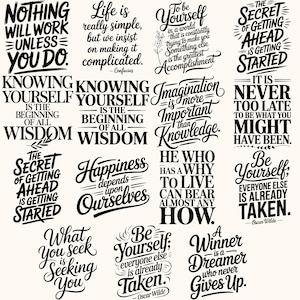 NOTHING
WILL WORK
UNLESS
YOU DO.
Life is
really simple,
but we insist
on making it
complicated.
- Confucius
To be
Yourself
in a world
that is constantly
trying to make you
Something else
is the greatest
Accomplishment
THE
SECRET
OF GETTING
AHEAD
IS GETTING
STARTED
KNOWING
YOURSELF
IS THE
BEGINNING
OF ALL
WISDOM
KNOWING
YOURSELF
IS THE
BEGINNING
OF ALL
WISDOM
Imagination
is more
Important
than
Knowledge.
IT IS
NEVER
TOO LATE
TO BE WHAT YOU
MIGHT
HAVE BEEN.
THE
SECRET
OF GETTING
AHEAD
IS GETTING
STARTED
Happiness
depends
upon
Ourselves.
HE WHO
HAS A WHY
TO LIVE
CAN BEAR
ALMOST ANY
HOW.
Be
Yourself;
EVERYONE ELSE
IS ALREADY
TAKEN.
- Oscar Wilde -
What
You Seek
is
Seeking
You
Be
Yourself;
everyone else
is already
Taken.
- Oscar Wilde
A
Winner
is a
Dreamer
who never
Gives Up.